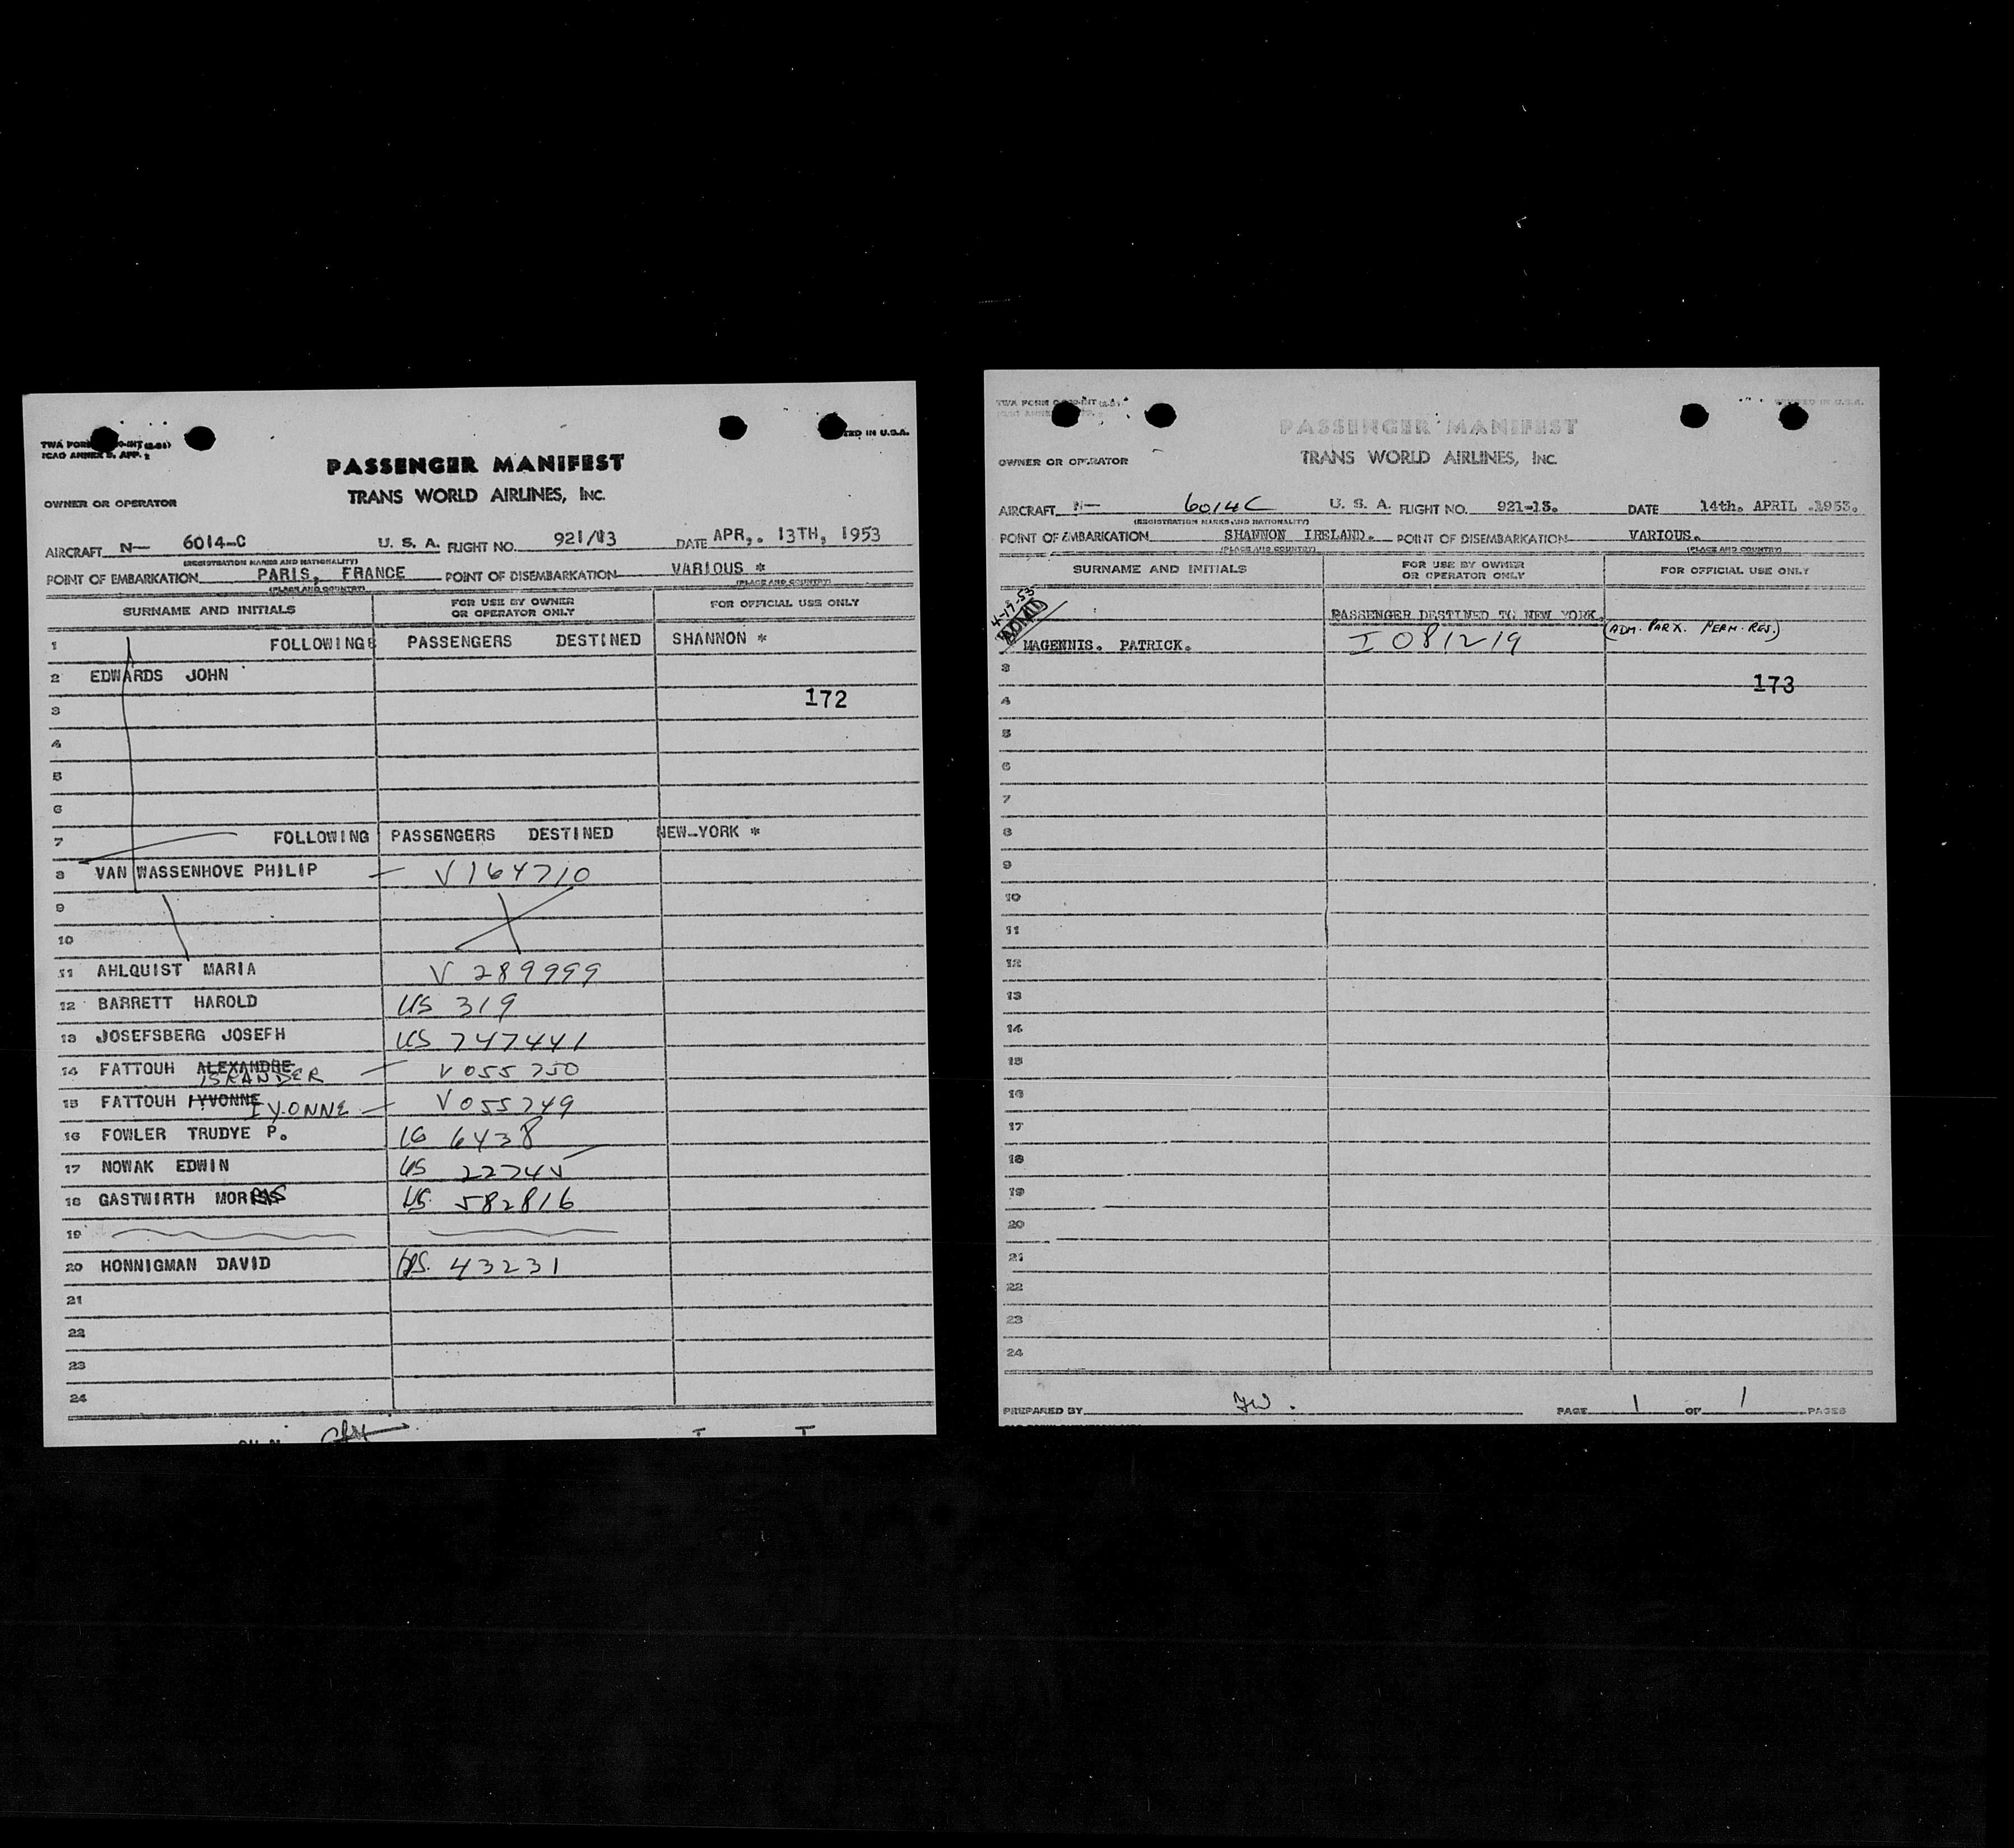 PASSENGER MANIFEST
TRANS WORLD AIRLINES, INC.
OWNER OR OPERATOR
AIRCRAFT N— 6014-C U. S. A. FLIGHT NO. 921/13 DATE APR,. 13TH, 1953
(REGISTRATION MARKS AND NATIONALITY)
POINT OF EMBARKATION PARIS, FRANCE POINT OF DISEMBARKATION VARIOUS *
(PLACE AND COUNTRY) (PLACE AND COUNTRY)
SURNAME AND INITIALS FOR USE BY OWNER OR OPERATOR ONLY FOR OFFICIAL USE ONLY
1 FOLLOWING PASSENGERS DESTINED SHANNON *
2 EDWARDS JOHN
3 172
4
5
6
7 FOLLOWING PASSENGERS DESTINED NEW-YORK *
8 VAN WASSENHOVE PHILIP — V 164710
9
10
11 AHLQUIST MARIA V 289999
12 BARRETT HAROLD US 319
13 JOSEFSBERG JOSEFH US 747441
14 FATTOUH ALEXANDRE ISKANDER — V 055750
15 FATTOUH YVONNE IYONNE — V 055749
16 FOWLER TRUDYE P. 6438
17 NOWAK EDWIN US 22745
18 GASTWIRTH MORRIS US. 582816
19
20 HONNIGMAN DAVID US. 43231
21
22
23
24
PASSENGER MANIFEST
TRANS WORLD AIRLINES, INC.
OWNER OR OPERATOR
AIRCRAFT N— 6014C U. S. A. FLIGHT NO. 921-13. DATE 14th. APRIL .1953.
(REGISTRATION MARKS AND NATIONALITY)
POINT OF EMBARKATION SHANNON IRELAND. POINT OF DISEMBARKATION VARIOUS.
(PLACE AND COUNTRY) (PLACE AND COUNTRY)
SURNAME AND INITIALS FOR USE BY OWNER OR OPERATOR ONLY FOR OFFICIAL USE ONLY
4-17-53
ADMD
PASSENGER DESTINED TO NEW YORK.
MAGENNIS. PATRICK. I 081219 (ADM. PARX. PERM. RES.)
3
173
4
5
6
7
8
9
10
11
12
13
14
15
16
17
18
19
20
21
22
23
24
PREPARED BY PAGE 1 OF 1 PAGES